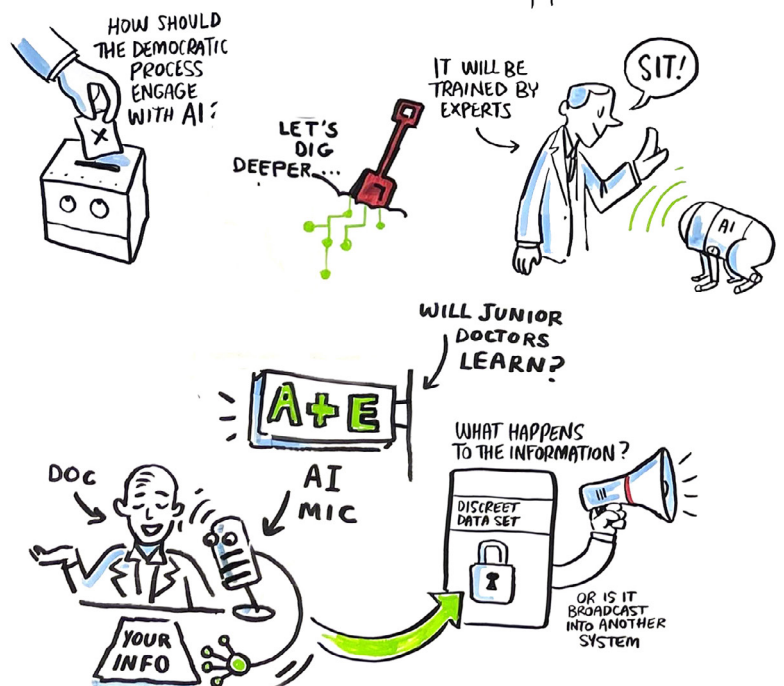 HOW SHOULD
THE DEMOCRATIC
PROCESS
ENGAGE
WITH AI?
X
LET'S
DIG
DEEPER....
IT WILL BE
TRAINED BY
EXPERTS
SIT!
AI
WILL JUNIOR
DOCTORS
LEARN?
A+E
DOC
AI
MIC
YOUR
INFO
WHAT HAPPENS
TO THE INFORMATION?
DISCREET
DATA SET
OR IS IT
BROADCAST
INTO ANOTHER
SYSTEM